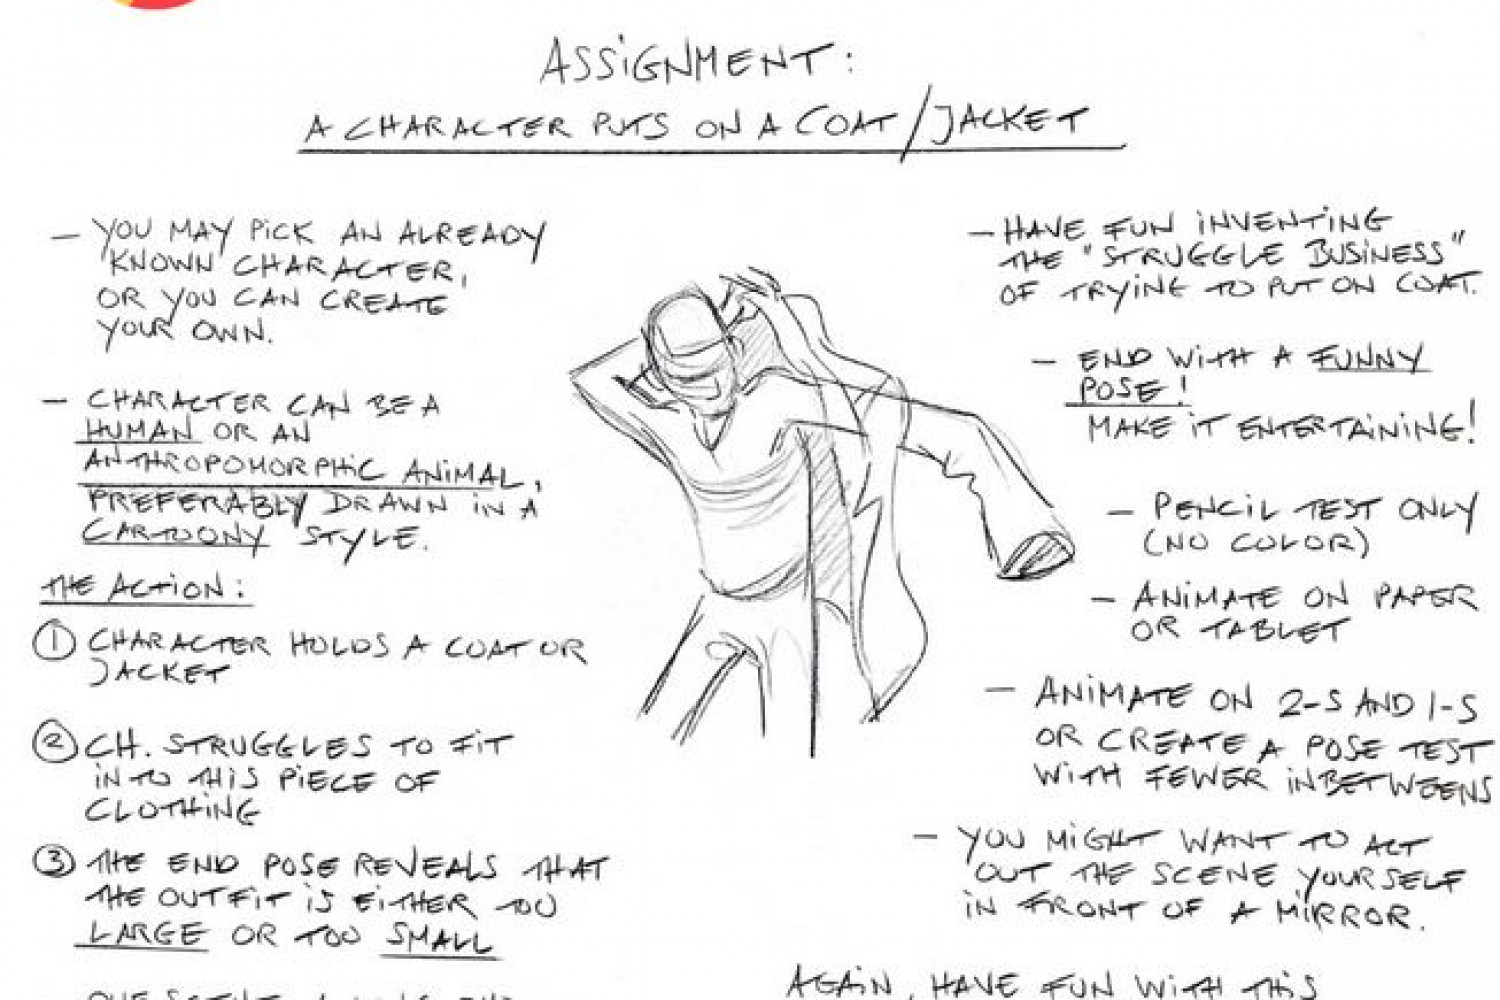 ASSIGNMENT:
A CHARACTER PUTS ON A COAT/JACKET
– YOU MAY PICK AN ALREADY
KNOWN CHARACTER,
OR YOU CAN CREATE
YOUR OWN.
– CHARACTER CAN BE A
HUMAN OR AN
ANTHROPOMORPHIC ANIMAL,
PREFERABLY DRAWN IN A
CARTOONY STYLE.
THE ACTION:
① CHARACTER HOLDS A COAT OR
JACKET
② CH. STRUGGLES TO FIT
INTO THIS PIECE OF
CLOTHING
③ THE END POSE REVEALS THAT
THE OUTFIT IS EITHER TOO
LARGE OR TOO SMALL
– HAVE FUN INVENTING
THE "STRUGGLE BUSINESS"
OF TRYING TO PUT ON COAT.
– END WITH A FUNNY
POSE!
MAKE IT ENTERTAINING!
– PENCIL TEST ONLY
(NO COLOR)
– ANIMATE ON PAPER
OR TABLET
– ANIMATE ON 2-S AND 1-S
OR CREATE A POSE TEST
WITH FEWER INBETWEENS
– YOU MIGHT WANT TO ACT
OUT THE SCENE YOURSELF
IN FRONT OF A MIRROR.
AGAIN, HAVE FUN WITH THIS